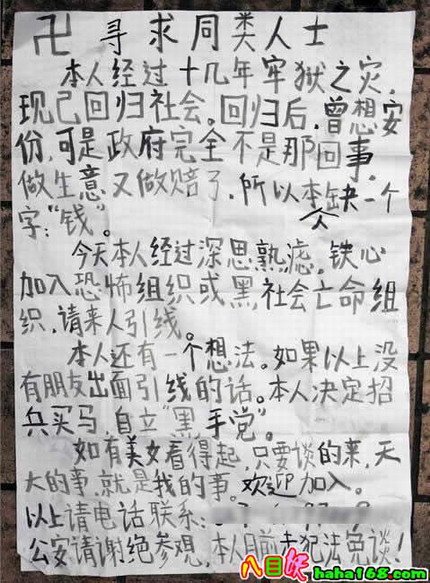 卍 寻求同类人士
本人经过十几年牢狱之灾,
现已回归社会。回归后,曾想安
份,可是政府完全不是那回事,
做生意又做赔了,所以本人缺一个
字:“钱”。
今天本人经过深思熟虑。铁心
加入恐怖组织或黑社会亡命组
织,请来人引线。
本人还有一个想法。如果以上没
有朋友出面引线的话。本人决定招
兵买马,自立“黑手党”。
如有美女看得起,只要谈的来,天
大的事,就是我的事。欢迎加入。
以上请电话联系:
公安请谢绝参观,本人目前未犯法免谈!
八目妖
haha168.com